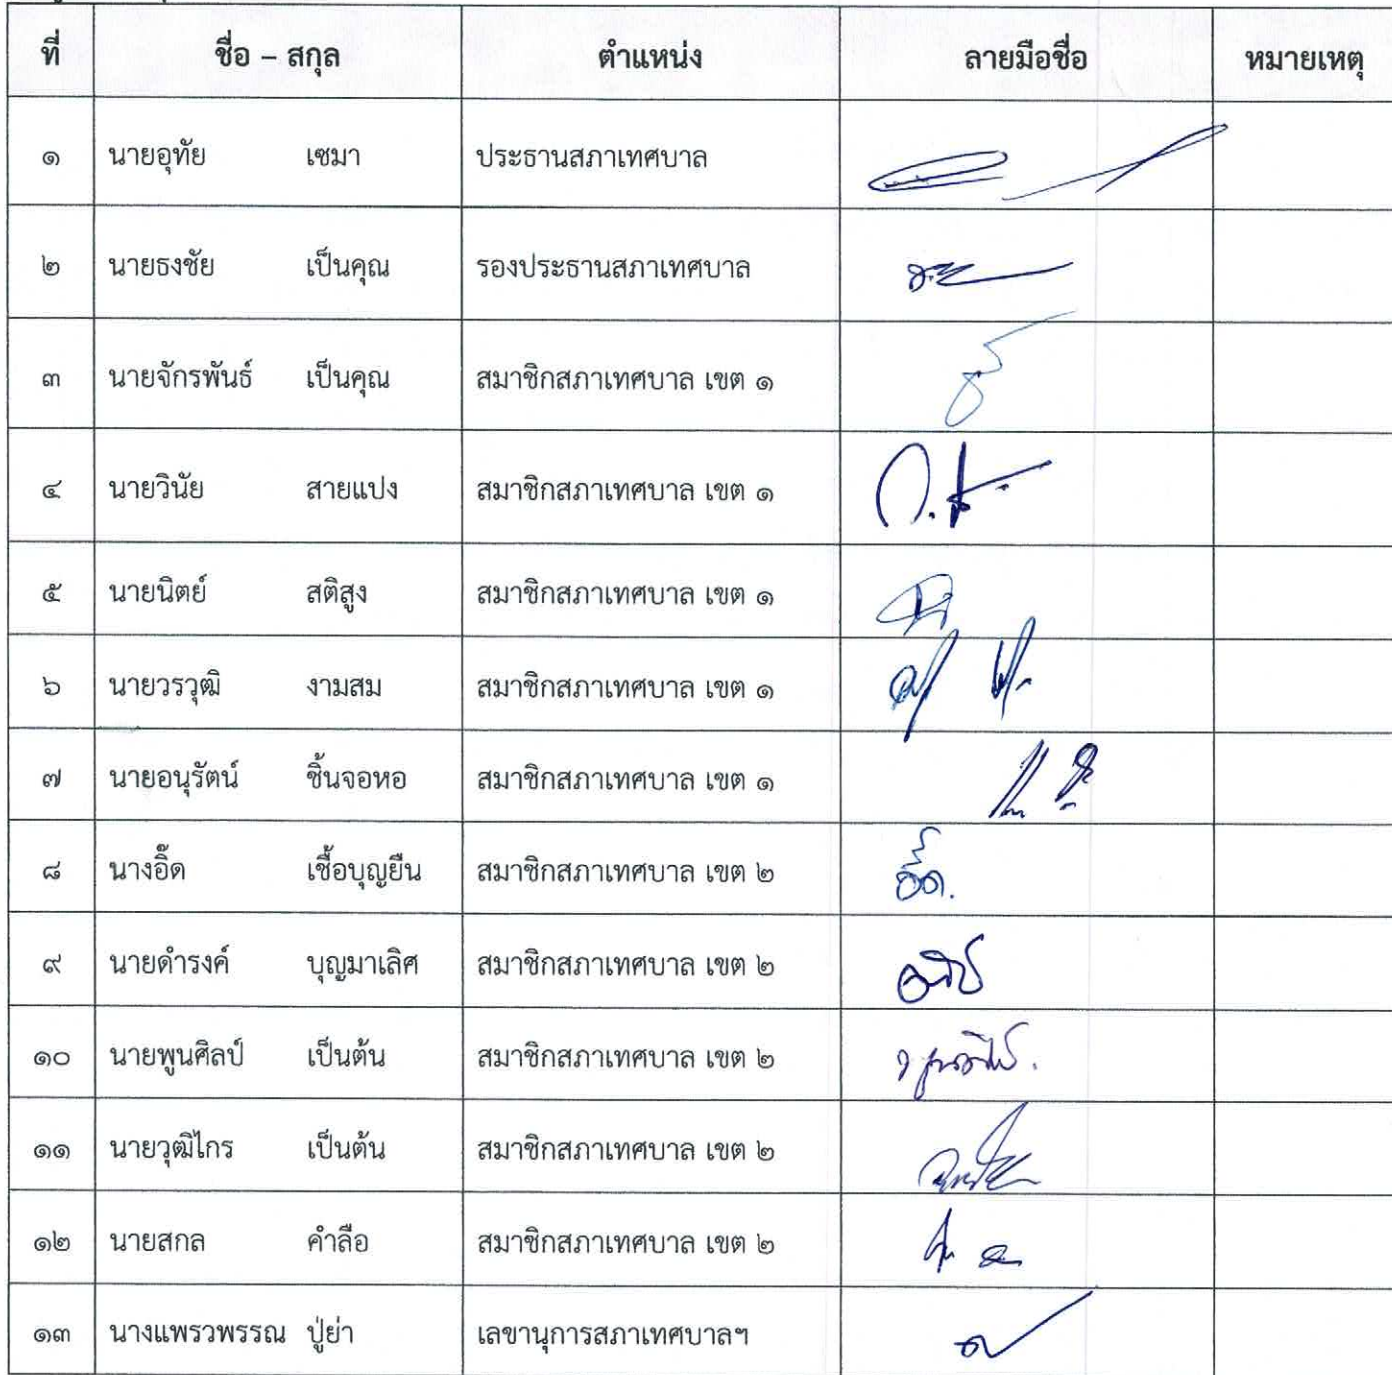 ที่ ชื่อ – สกุล ตำแหน่ง ลายมือชื่อ หมายเหตุ
๑ นายอุทัย เซมา ประธานสภาเทศบาล
๒ นายธงชัย เป็นคุณ รองประธานสภาเทศบาล
๓ นายจักรพันธ์ เป็นคุณ สมาชิกสภาเทศบาล เขต ๑
๔ นายวินัย สายแปง สมาชิกสภาเทศบาล เขต ๑
๕ นายนิตย์ สติสูง สมาชิกสภาเทศบาล เขต ๑
๖ นายวรวุฒิ งามสม สมาชิกสภาเทศบาล เขต ๑
๗ นายอนุรัตน์ ชิ้นจอหอ สมาชิกสภาเทศบาล เขต ๑
๘ นางอิ๊ด เชื้อบุญยืน สมาชิกสภาเทศบาล เขต ๒ อิ๊ด.
๙ นายดำรงค์ บุญมาเลิศ สมาชิกสภาเทศบาล เขต ๒
๑๐ นายพูนศิลป์ เป็นต้น สมาชิกสภาเทศบาล เขต ๒
๑๑ นายวุฒิไกร เป็นต้น สมาชิกสภาเทศบาล เขต ๒
๑๒ นายสกล คำลือ สมาชิกสภาเทศบาล เขต ๒
๑๓ นางแพรวพรรณ ปู่ย่า เลขานุการสภาเทศบาลฯ